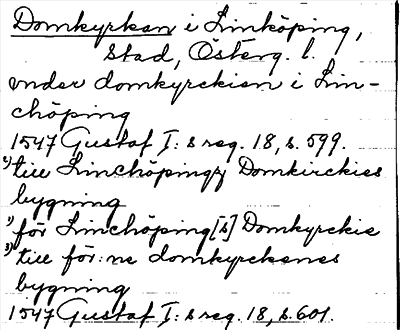 Domkyrkan i Linköping,
stad, Österg. l.
vnder domkyrckian i Lin-
chöping
1547 Gustaf I: s reg. 18, s. 599.
2) till Linchöpingz Domkirckies
bygning
1) för Linchöping[s] Domkyrckie
3) till för:ne domkyrckenes
bygning
1547 Gustaf I: s reg. 18, s. 601.